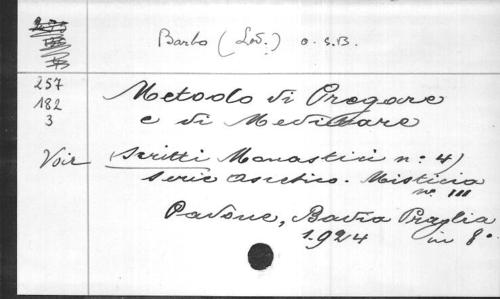 Barbo (Lod.) o.s.B.
257
182
3
Metodo di Pregare
e di Meditare
Voir (Scritti Monastici n: 4)
Serie Ascetico. Mistica
no. III
Padoue, Badia Praglia
1924 in 8o